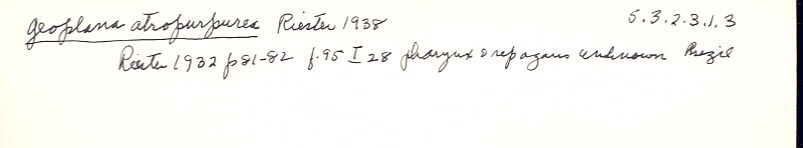 Geoplana atropurpurea Riester 1938 5.3.2.3.1.3
Riester 1932 p 81-82 f. 95 I 28 pharynx & rep organs unknown Brazil